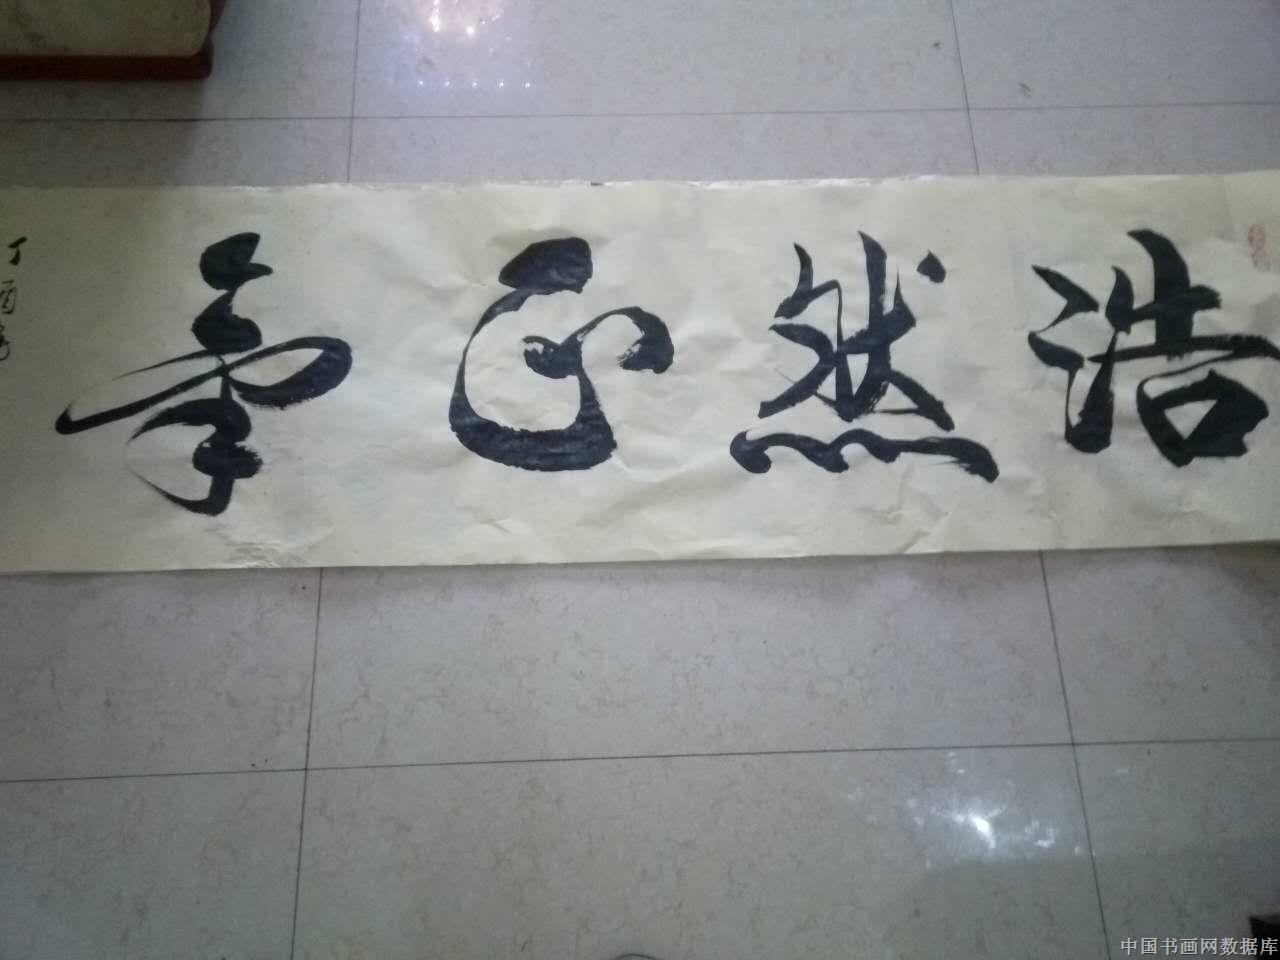 浩然正氣
丁酉
中国书画网数据库